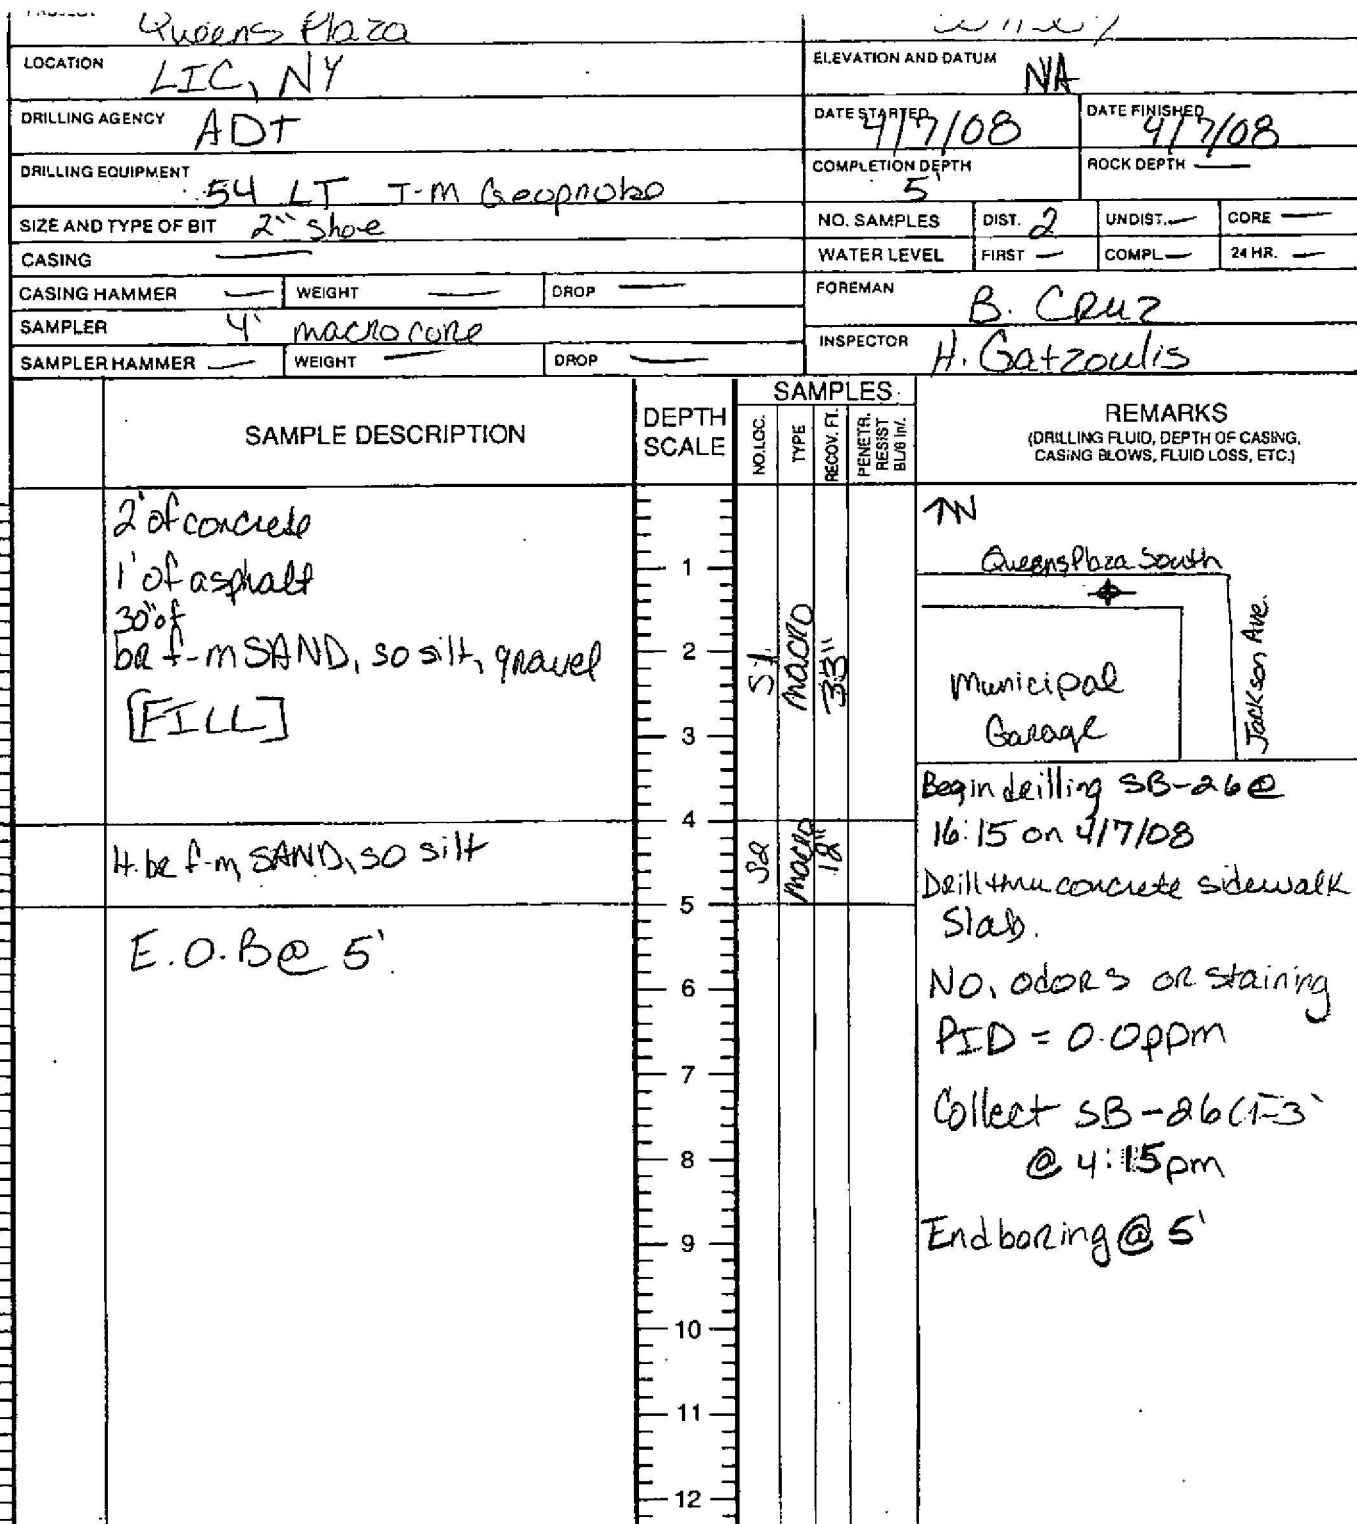 Queens Plaza
LOCATION LIC, NY
ELEVATION AND DATUM NA
DRILLING AGENCY ADT
DATE STARTED 4/7/08
DATE FINISHED 4/7/08
DRILLING EQUIPMENT 54 LT T-M Geoprobe
COMPLETION DEPTH 5'
ROCK DEPTH —
SIZE AND TYPE OF BIT 2" shoe
NO. SAMPLES DIST. 2 UNDIST. — CORE —
CASING —
WATER LEVEL FIRST — COMPL — 24 HR. —
CASING HAMMER — WEIGHT — DROP —
FOREMAN B. CRUZ
SAMPLER 4' macrocore
INSPECTOR H. Gatzoulis
SAMPLER HAMMER — WEIGHT — DROP —
SAMPLE DESCRIPTION
DEPTH
SCALE
SAMPLES
NO.LOC.
TYPE
RECOV. FT.
PENETR.
RESIST
BL/6 in/.
REMARKS
(DRILLING FLUID, DEPTH OF CASING,
CASING BLOWS, FLUID LOSS, ETC.)
2' of concrete
1' of asphalt
30" of
br f-m SAND, so silt, gravel
[FILL]
lt. br f-m SAND, so silt
E.O.B @ 5'
1
2
3
4
5
6
7
8
9
10
11
12
S1 macro 33"
S2 macro 12"
↑N
Queens Plaza South
Jackson Ave.
Municipal
Garage
Begin drilling SB-26 @
16:15 on 4/7/08
Drill thru concrete sidewalk
Slab.
No, odors or staining
PID = 0.0ppm
Collect SB-26 (1-3'
@ 4:15pm
End boring @ 5'